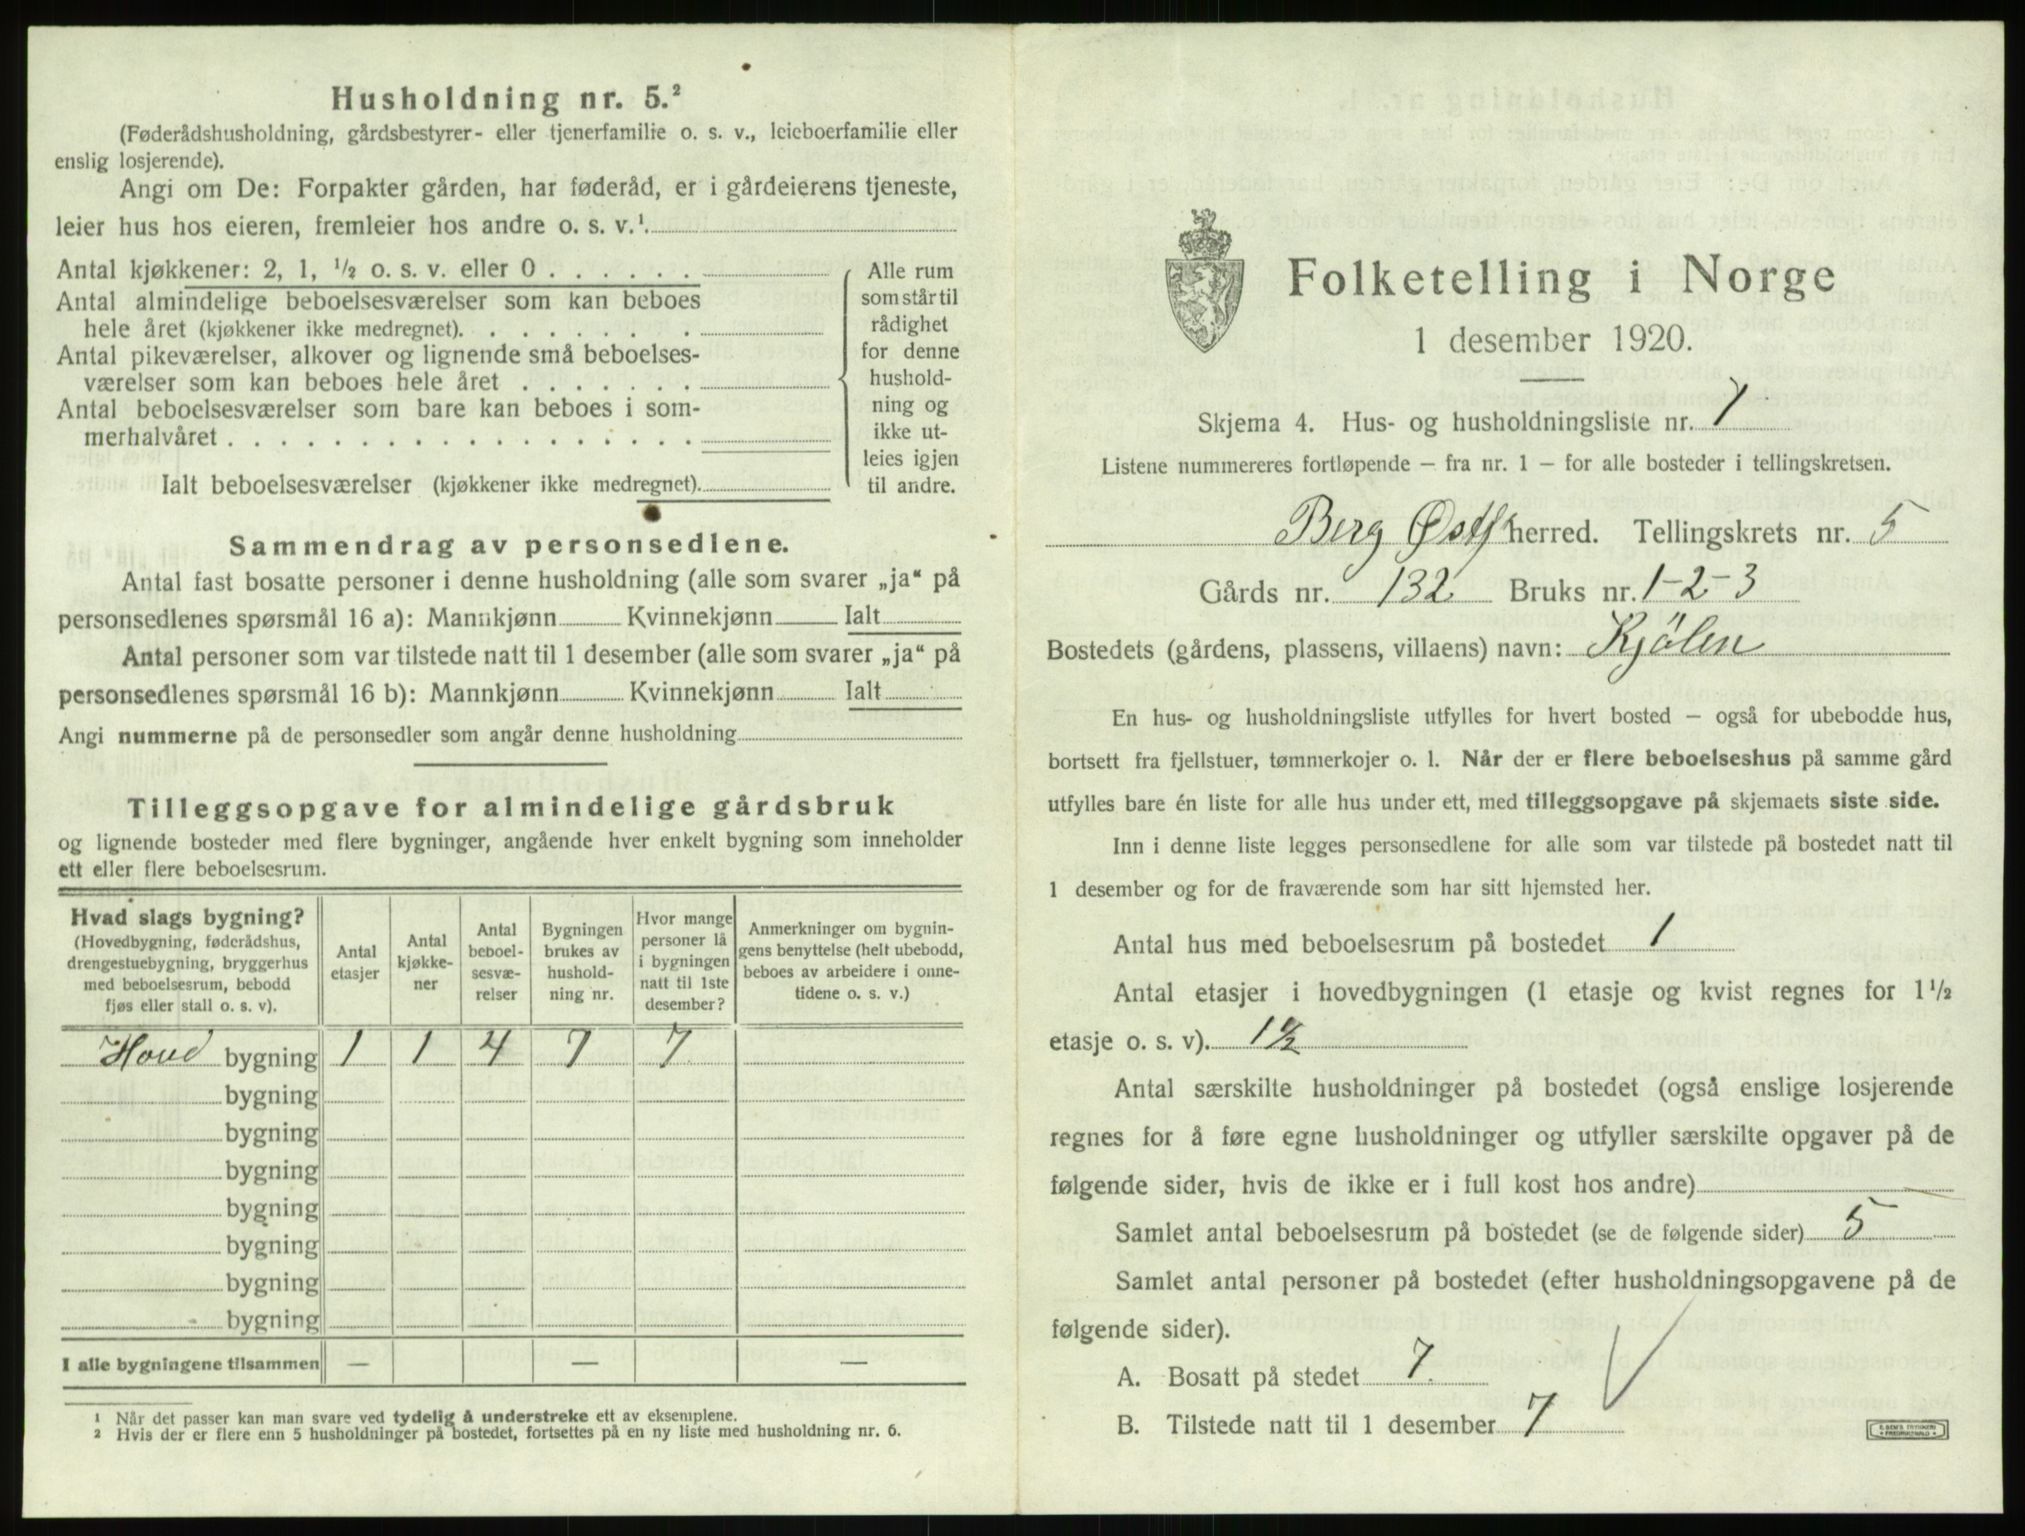 Husholdning nr. 5.²
(Føderådshusholdning, gårdsbestyrer- eller tjenerfamilie o. s. v., leieboerfamilie eller
enslig losjerende).
Angi om De: Forpakter gården, har føderåd, er i gårdeierens tjeneste,
leier hus hos eieren, fremleier hos andre o. s. v.¹
Antal kjøkkener: 2, 1, ½ o. s. v. eller 0 . . . . . .
Antal almindelige beboelsesværelser som kan beboes
hele året (kjøkkener ikke medregnet). . . . . . . .
Antal pikeværelser, alkover og lignende små beboelses-
værelser som kan beboes hele året . . . . . . .
Antal beboelsesværelser som bare kan beboes i som-
merhalvåret . . . . . . . . . . . . . . . . . .
Ialt beboelsesværelser (kjøkkener ikke medregnet).
Alle rum
som står til
rådighet
for denne
hushold-
ning og
ikke ut-
leies igjen
til andre.
Sammendrag av personsedlene.
Antal fast bosatte personer i denne husholdning (alle som svarer „ja“ på
personsedlenes spørsmål 16 a): Mannkjønn Kvinnekjønn Ialt
Antal personer som var tilstede natt til 1 desember (alle som svarer „ja“ på
personsedlenes spørsmål 16 b): Mannkjønn Kvinnekjønn Ialt
Angi nummerne på de personsedler som angår denne husholdning
Tilleggsopgave for almindelige gårdsbruk
og lignende bosteder med flere bygninger, angående hver enkelt bygning som inneholder
ett eller flere beboelsesrum.
Hvad slags bygning?
(Hovedbygning, føderådshus,
drengestuebygning, bryggerhus
med beboelsesrum, bebodd
fjøs eller stall o. s. v).
Antal
etasjer
Antal
kjøkke-
ner
Antal
beboel-
sesvæ-
relser
Bygningen
brukes av
hushold-
ning nr.
Hvor mange
personer lå
i bygningen
natt til 1ste
desember?
Anmerkninger om bygnin-
gens benyttelse (helt ubebodd,
beboes av arbeidere i onne-
tidene o. s. v.)
Hoved bygning 1 1 4 7 7
bygning
bygning
bygning
bygning
bygning
bygning
bygning
I alle bygningene tilsammen — — —
¹ Når det passer kan man svare ved tydelig å understreke ett av eksemplene.
² Hvis der er flere enn 5 husholdninger på bostedet, fortsettes på en ny liste med husholdning nr. 6.
Folketelling i Norge
1 desember 1920.
Skjema 4. Hus- og husholdningsliste nr. 7
Listene nummereres fortløpende – fra nr. 1 – for alle bosteder i tellingskretsen.
Berg Østf herred. Tellingskrets nr. 5
Gårds nr. 132 Bruks nr. 1-2-3
Bostedets (gårdens, plassens, villaens) navn: Kjølen
En hus- og husholdningsliste utfylles for hvert bosted – også for ubebodde hus,
bortsett fra fjellstuer, tømmerkojer o. l. Når der er flere beboelseshus på samme gård
utfylles bare én liste for alle hus under ett, med tilleggsopgave på skjemaets siste side.
Inn i denne liste legges personsedlene for alle som var tilstede på bostedet natt til
1 desember og for de fraværende som har sitt hjemsted her.
Antal hus med beboelsesrum på bostedet 1
Antal etasjer i hovedbygningen (1 etasje og kvist regnes for 1½
etasje o. s. v). 1½
Antal særskilte husholdninger på bostedet (også enslige losjerende
regnes for å føre egne husholdninger og utfyller særskilte opgaver på de
følgende sider, hvis de ikke er i full kost hos andre)
Samlet antal beboelsesrum på bostedet (se de følgende sider) 5
Samlet antal personer på bostedet (efter husholdningsopgavene på de
følgende sider).
A. Bosatt på stedet 7.
B. Tilstede natt til 1 desember 7